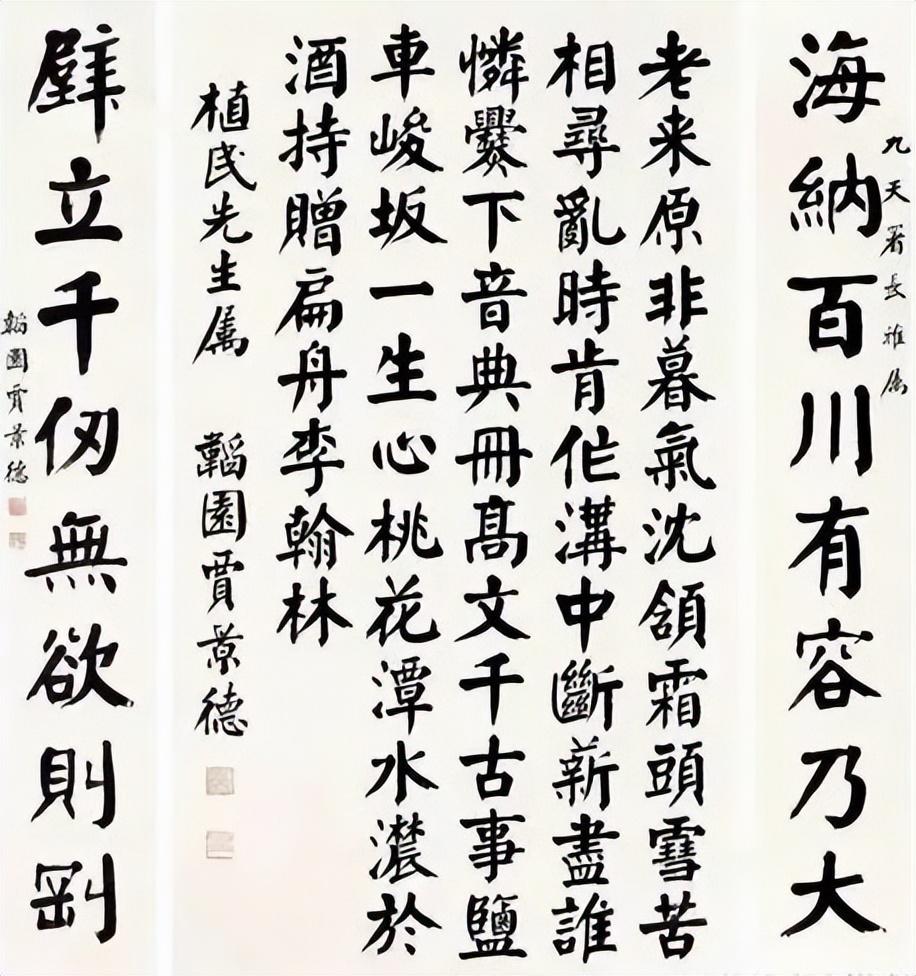 九天署長雅属
海納百川有容乃大
老来原非暮氣沈頷霜頭雪苦
相尋亂時肯作溝中斷薪盡誰
憐爨下音典冊髙文千古事鹽
車峻坂一生心桃花潭水濃於
酒持贈扁舟李翰林
植民先生属 韜園賈景德
壁立千仞無欲則剛
韜園賈景德